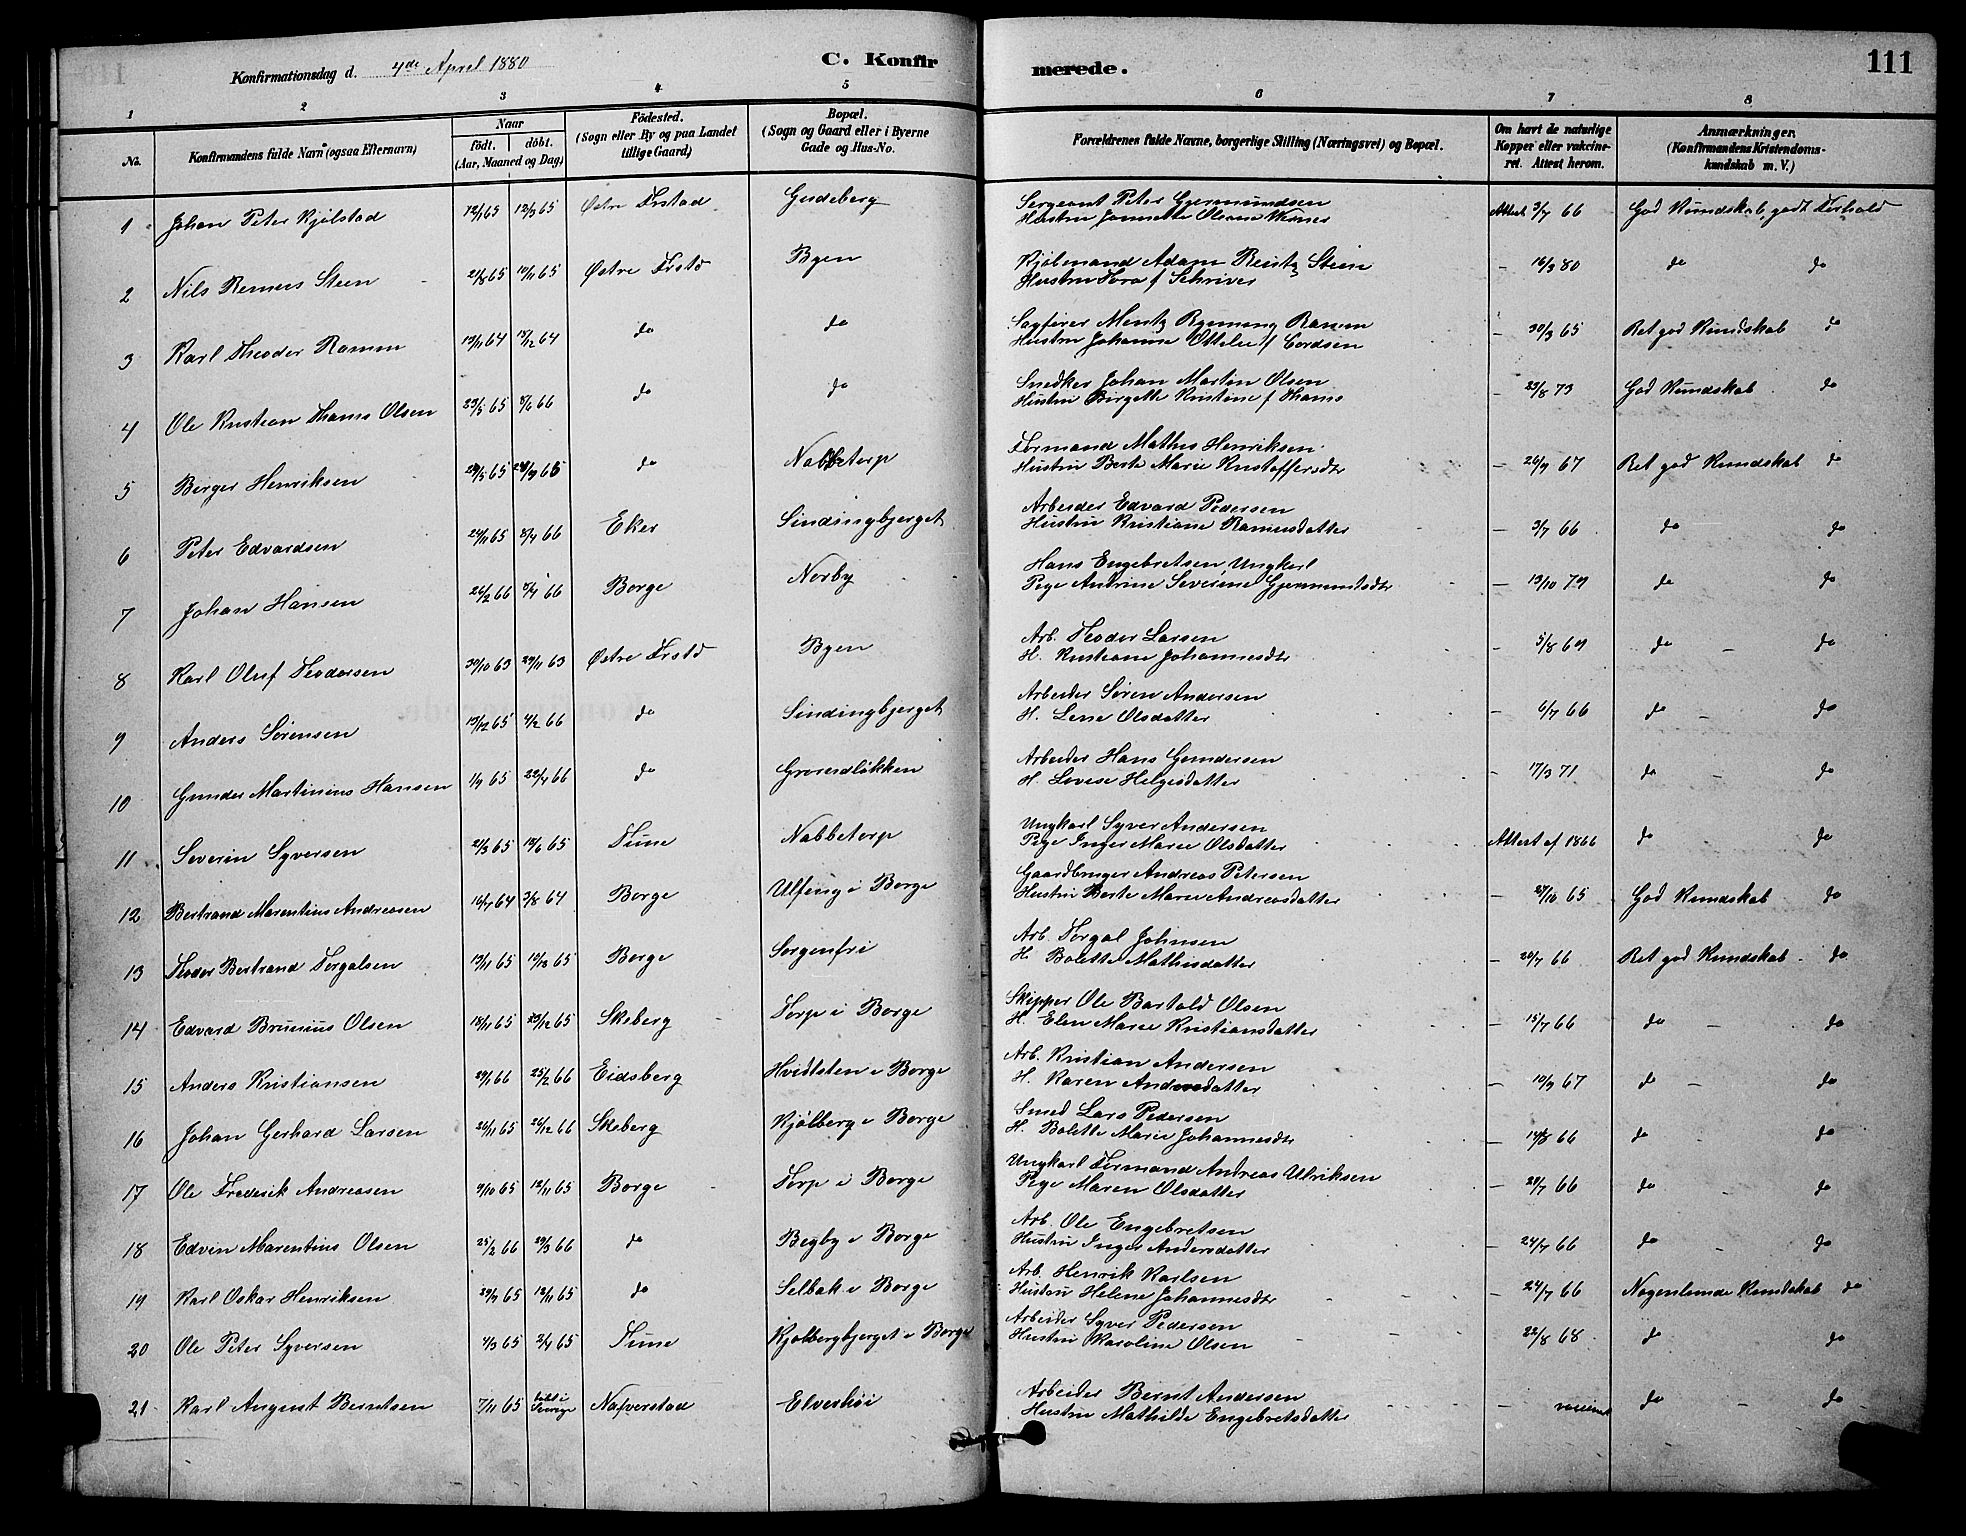 Konfirmationsdag d. 4de April 1880
C. Konfirmerede.
111
1 2 3 4 5 6 7 8
No.
Konfirmandens fulde Navn (ogsaa Efternavn)
Naar
födt. döbt.
(Aar, Maaned og Dag)
Födested.
(Sogn eller By og paa Landet
tillige Gaard)
Bopæl.
(Sogn og Gaard eller i Byerne
Gade og Hus-No.
Forældrenes fulde Navne, borgerlige Stilling (Næringsvei) og Bopæl.
Om havt de naturlige
Kopper eller vakcine-
ret. Attest herom.
Anmærkninger.
(Konfirmandens Kristendoms-
kundskab m. V.)
1 Johan Peter Kjølstad 12/1 65 12/3 65 Østre Frstad Gudeberg
Sergeant Peter Gjermundsen
Hustru Jannette Oleane
Attest 3/7 66 God Kundskab, godt Forhold
2 Nils Remers Steen 21/8 65 19/11 65 Østre Frstd Byen
Kjøbmand Adam Reutz Steen
Hustru Tora f Schriver
- 16/3 80 do do
3 Karl Theodor Ramm 19/11 64 18/12 64 do do
Sagfører Mentz Ramm
Hustru Johanne Ottilie f Cordsen
- 30/3 65 Ret god Kundskab do
4 Ole Kristian Thams Olsen 23/5 65 3/6 66 do do
Snedker Johan Martin Olsen
Hustru Birgette Kristine f Thams
- 23/8 73 God Kundskab do
5 Berger Henriksen 29/5 65 24/9 65 do Nabbetorp
Formand Mathis Henriksen
Hustru Berte Marie Kristoffersdtr
- 26/9 67 Ret god Kundskab do
6 Peter Edvardsen 24/11 65 8/4 66 Eker Sindingbjerget
Arbeider Edvard Pedersen
Hustru Kristiane Ramusdatter
- 3/7 66 do do
7 Johan Hansen 26/2 66 8/4 66 Borge Norby
Hans Engebretsen Ungkarl
Pige Antrine Severine Gjermundsdtr
- 13/10 79 do do
8 Karl Oluf Teodorsen 30/10 63 29/11 63 Østre Frstd Byen
Arb. Teodor Larsen
H. Kristiane Johannesdtr
- 5/8 69 do - do
9 Anders Sørensen 19/12 65 4/2 66 do Sindingbjerget
Arbeider Søren Andersen
H. Lene Olsdatter
- 6/7 66 do - do
10 Gunder Martinius Hansen 1/9 65 22/4 66 do Grorudløkken
Arbeider Hans Gundersen
H. Lovise Helgesdatter
- 17/3 71 do - do
11 Severin Syversen 21/3 65 18/6 65 Tune Nabbetorp
Ungkarl Syver Andersen
Pige Inger Marie Olsdatter
Attest af 1866 do do
12 Bertrand Marentius Andreasen 16/7 64 3/8 64 Borge Ulfeng i Borge
Gaardbruger Andreas Petersen
Hustru Berte Marie Andreasdatter
- 27/10 65 God Kundskab do
13 Teodor Bertrand Torgalsen 19/11 65 10/12 65 Borge Sorgenfri
Arb. Torgal Johnsen
H. Bolette Mathisdatter
- 20/7 66 Ret god Kundskab do
14 Edvard Brunius Olsen 18/11 65 23/12 65 Skeberg Torp i Borge
Skipper Ole Bartold Olsen
H. Elen Marie Kristiansdatter
- 15/7 66 do - do
15 Anders Kristiansen 29/1 66 25/2 66 Eidsberg Hvidtsten i Borge
Arb. Kristian Andersen
H. Karen Andersdatter
- 10/9 67 do - do
16 Johan Gerhard Larsen 26/11 65 26/12 66 Skeberg Kjølberg i Borge
Smed Lars Pedersen
H. Bolette Marie Johannesdtr
- 14/8 66 do - do
17 Ole Frederik Andreasen 9/10 65 12/11 65 Borge Torp i Borge
Ungkarl Formand Andreas Ulriksen
Pige Maren Olsdatter
- 20/7 66 do - do
18 Edvin Marentius Olsen 25/2 66 29/3 66 do Begby i Borge
Arb. Ole Engebretsen
Hustru Inger Andersdatter
- 24/7 66 do - do
19 Karl Oskar Henriksen 29/9 65 12/11 65 do Selbak i Borge
Arb. Henrik Karlsen
Hustru Helene Johannesdtr
- 24/7 66 Nogenlunde Kundskab do
20 Ole Peter Syversen 4/3 65 2/4 65 Tune Kjølbergbjerget i Borge
Arbeider Syver Pedersen
Hustru Karoline Olsen
- 22/8 68 do do
21 Karl August Berntsen 7/11 65 døbt i Sverige Nafverstad Elverhöi
Arbeider Bernt Andersen
Hustru Mathilde Engebretsdatter
- do - do